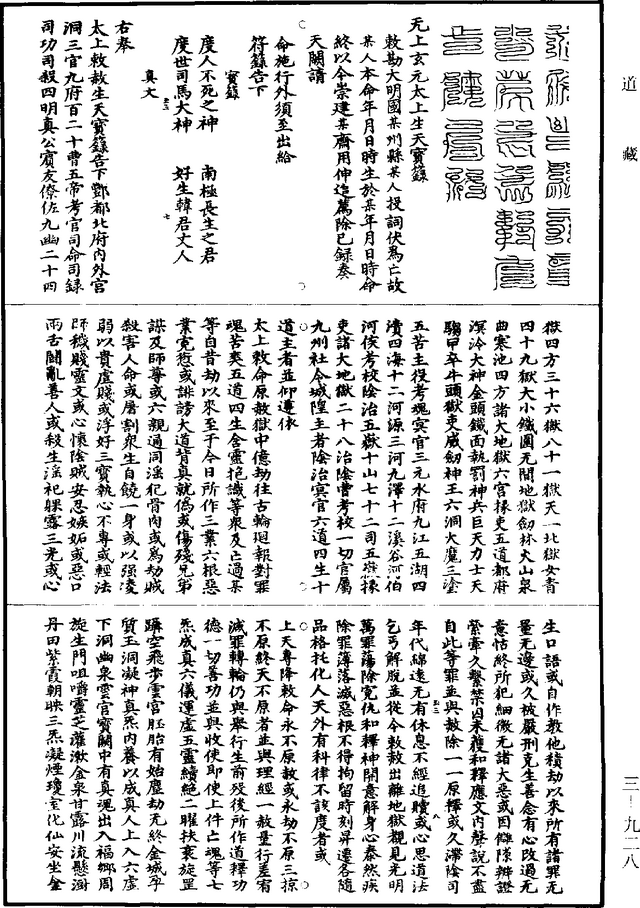 道藏
无上玄元太上生天寶籙
敕勘大明國某州縣某人投詞伏為亡故
某人本命年月日時生於某年月日時命
終以今崇建某齋用伸追薦除已錄奏
天闕請
命施行外須至出給
符籙告下
寶籙
度人不死之神　南極長生之君
度世司馬大神　好生韓君丈人
真文
右奉
太上敕赦生天寶籙告下酆都北府內外宮
洞三官九府百二十曹五帝考官司命司錄
司功司殺四明真公賓友僚佐九幽二十四
獄四方三十六獄八十一獄天一北獄女青
四十九獄大小鐵圍无間地獄劍林火山泉
曲寒池四方諸大地獄六宮掾吏五道都府
溟泠大神金頭鐵面執罰神兵巨天力士天
騶甲卒牛頭獄吏威劍神王六洞大魔三塗
五苦主役考魂冥官三元水府九江五湖四
瀆四海十二河源三河九澤十二溪谷河伯
河侯考校陰治五嶽十山七十二司五嶽掾
吏諸大地獄二十八治陰曹考校一切官屬
九州社令城隍主者陰治冥官六道四生十
道主者並仰遵依
太上敕命原赦獄中億劫往古輪迴報對罪
魂苦爽五道四生含靈抱識等衆及亡過某
等自昔劫以來至于今日所作三業六根惡
業寃愆或誹謗大道背真就偽或傷殘兄弟
謀及師尊或六親通同淫犯骨肉或為劫賊
殺害人命或屠割衆生自饒一身或以强凌
弱以貴虐賤或浮好三寶執心不專或輕法
師穢賤靈文或心懷陰賊安忍嫉妬或惡口
兩舌鬬亂善人或殺生淫祀躶露三光或心
生口語或自作教他積劫以來所有諸罪无
量无邊或久被嚴刑克生善念有心改過无
意怙終所犯細微无諸大惡或因讎隊辨證
縈牽久繫禁囚未獲和釋應文內聲說不盡
自此等罪並與赦除一一原釋或久滯陰司
年代綿遠无有休息不經追贖或心思道法
乞丐解脫並從今敕赦出離地獄覩見光明
萬罪蕩除寃仇和釋神開意解身心泰然疾
除罪簿落滅惡根不得拘留時刻昇遷各隨
品格托化人天外有科律不該度者或
上天專降敕命永不原赦或永劫不原三掠
不原終天不原者並與理經一赦量行差宥
減罪轉輪仍與舉行生前殁後所作道釋功
德一切善功並與收使即使上件亡魂等七
炁成真六儀運虛五靈續絕二曜扶衰旋罡
躡空飛步雲宮胚胎有始塵劫无終金城孚
質玉洞凝神真炁內養以成真人上入六虛
下洞幽泉雲宮寶闕中有真魂出入福鄉周
旋生門咀嚼靈芝灌漱金泉甘露川流懸澍
丹田紫霞朝映三炁凝煙瓊室化仙安坐金
三—九二八